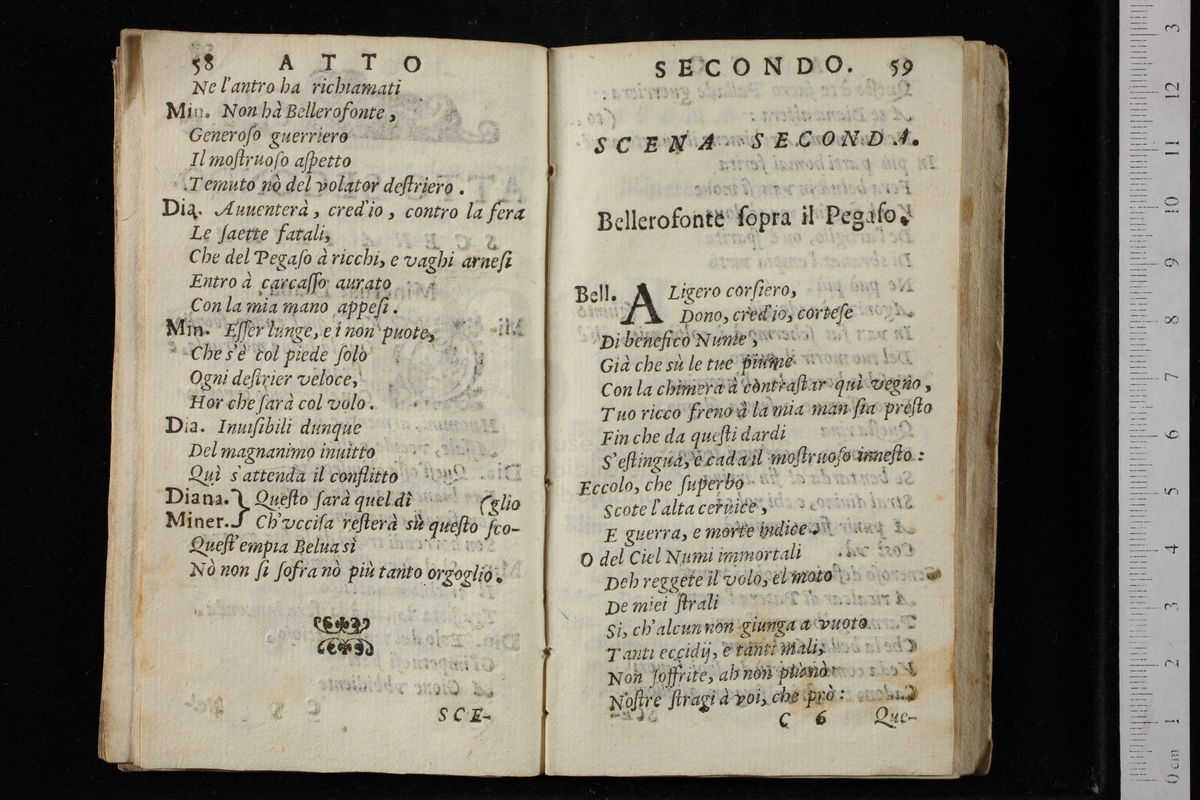 58 ATTO
Ne l'antro ha richiamati
Min. Non hà Bellerofonte,
Generoſo guerriero
Il moſtruoſo aſpetto
Temuto nò del volator deſtriero.
Dia. Auuenterà, cred'io, contro la fera
Le ſaette fatali,
Che del Pegaſo à ricchi, e vaghi arneſi
Entro à carcaſſo aurato
Con la mia mano appeſi.
Min. Eſſer lunge, e i non puote,
Che s'è col piede ſolo
Ogni deſtrier veloce,
Hor che ſarà col volo.
Dia. Inuiſibili dunque
Del magnanimo inuitto
Quì s'attenda il conflitto
Diana. } Queſto ſarà quel dì (glio
Miner. } Ch'vcciſa reſterà sù queſto ſco-
Queſt'empia Belua sì
Nò non ſi ſofra nò più tanto orgoglio.
SCE-
SECONDO. 59
SCENA SECONDA.
Bellerofonte ſopra il Pegaſo.
Bell. ALigero corſiero,
Dono, cred'io, corteſe
Di benefico Nume,
Già che sù le tue piume
Con la chimera à contraſtar quì vegno,
Tuo ricco freno à la mia man ſia preſto
Fin che da queſti dardi
S'eſtingua, e cada il moſtruoſo inneſto:
Eccolo, che ſuperbo
Scote l'alta ceruice,
E guerra, e morte indice.
O del Ciel Numi immortali
Deh reggete il volo, el moto
De miei ſtrali
Si, ch'alcun non giunga a vuoto
Tanti eccidij, e tanti mali,
Non ſoffrite, ah non più nò
Noſtre ſtragi à voi, che prò:
C 6 Que-